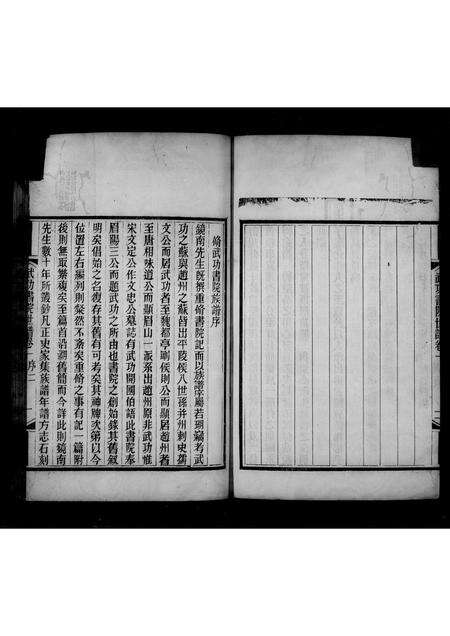 脩武功書院族譜序
鏡南先生既撰重脩書院記而以族譜序屬若瑚竊考武
功之蘇與趙州之蘇皆出平陵侯八世孫并州刺史孺
文公而居武功者至魏都亭剛侯則公而顯居趙州者
至唐相味道公而顯眉山一派系出趙州原非武功惟
宋文定公作文忠公墓誌有武功開國伯語此書院奉
眉陽三公而題武功之所由也書院之創始錄其舊敘
明矣倡始之名復存其舊有可考矣其神牌次第以今
位置左右編列則粲然不紊矣重脩之事有記一篇附
後則無取繁複矣至篇首沿溯舊簡而今詳此則鏡南
先生數十年所叢鈔凡正史家集族譜年譜方志石刻
武功書院世譜卷一 序 二
武功書院世譜卷一